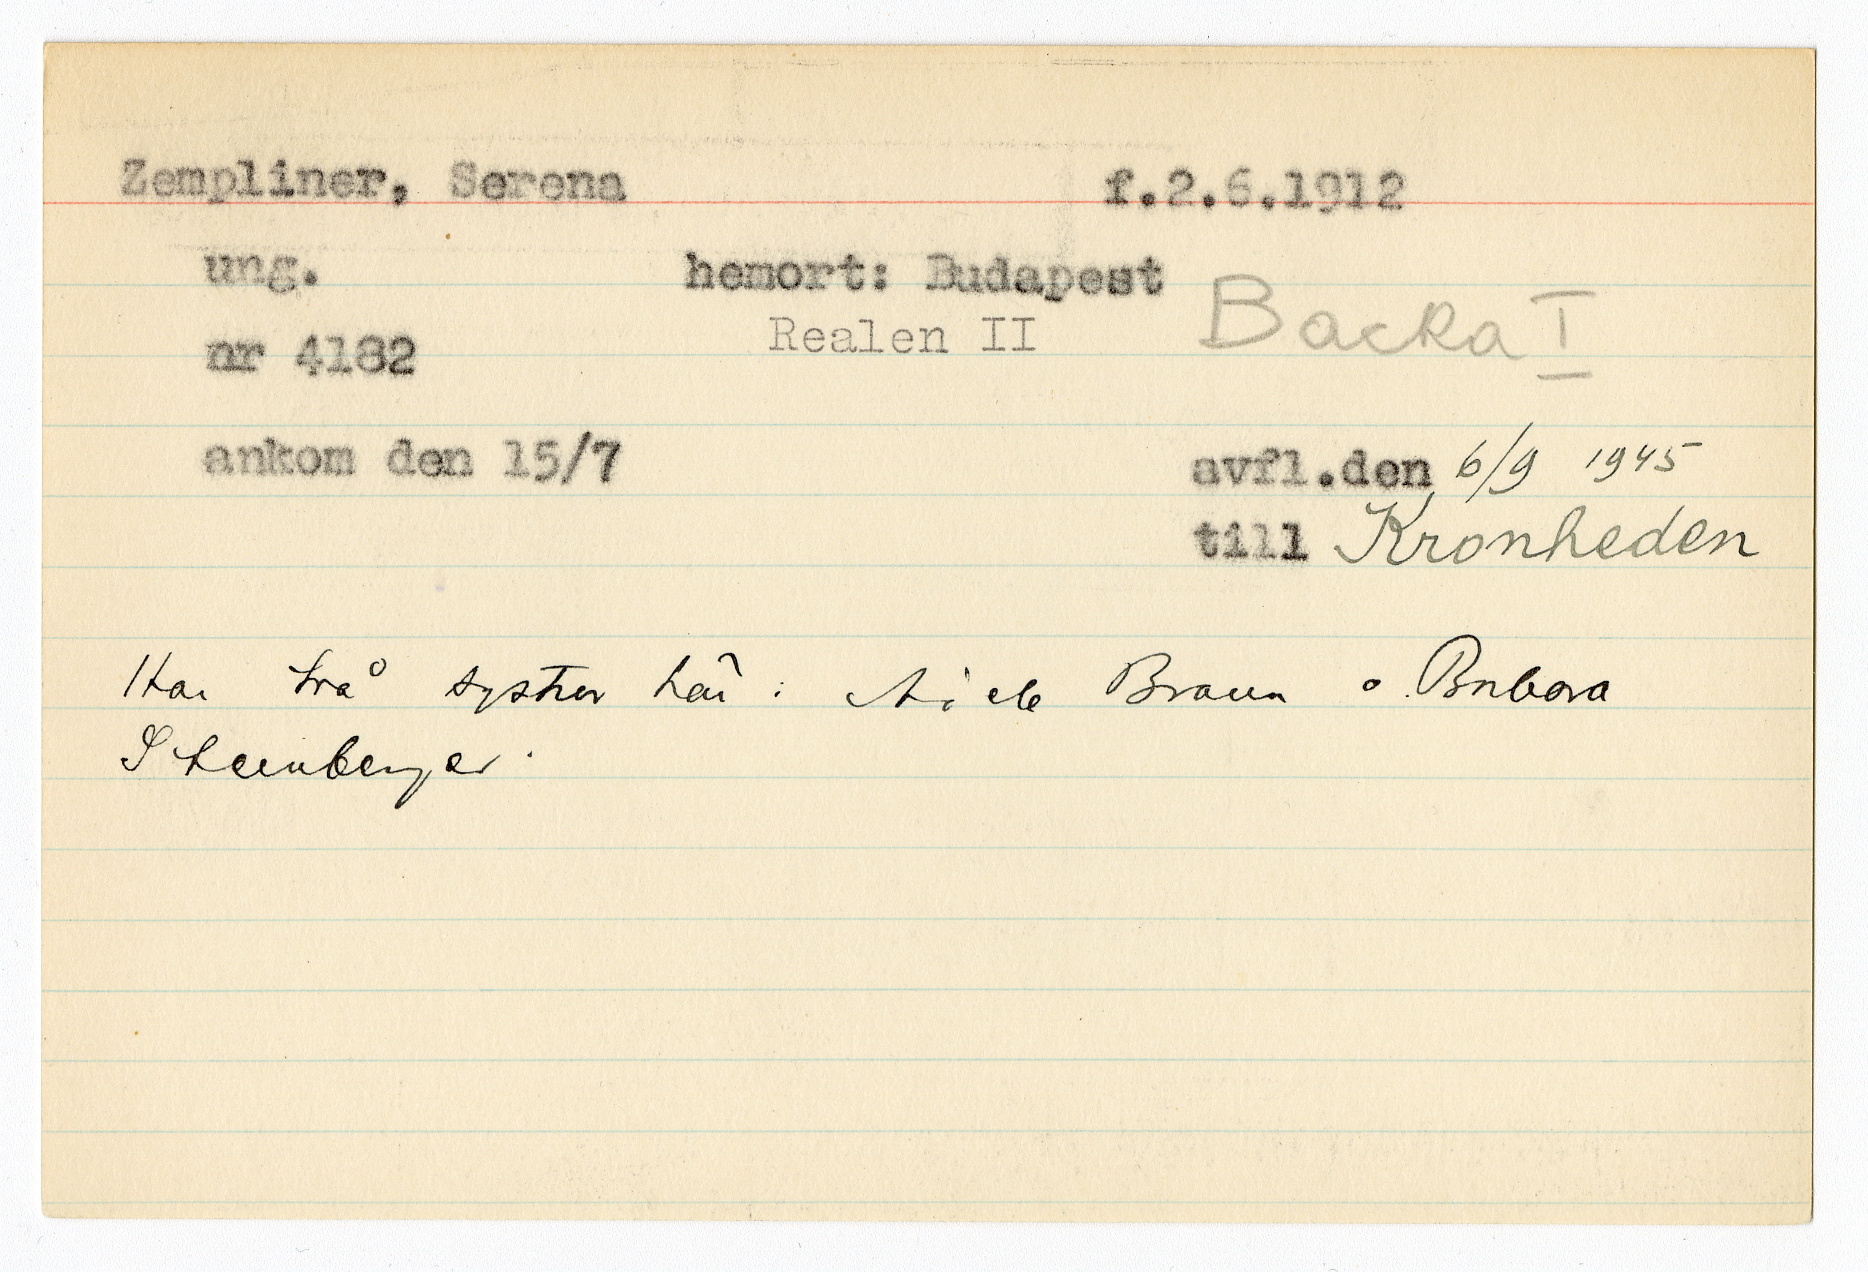 Zempliner, Serena f.2.6.1912
ung. hemort: Budapest
Realen II Backa I
nr 4182
ankom den 15/7 avfl.den 6/9 1945
till Kronheden
Har två systrar här: Braun o. Barbara
Sternberger.